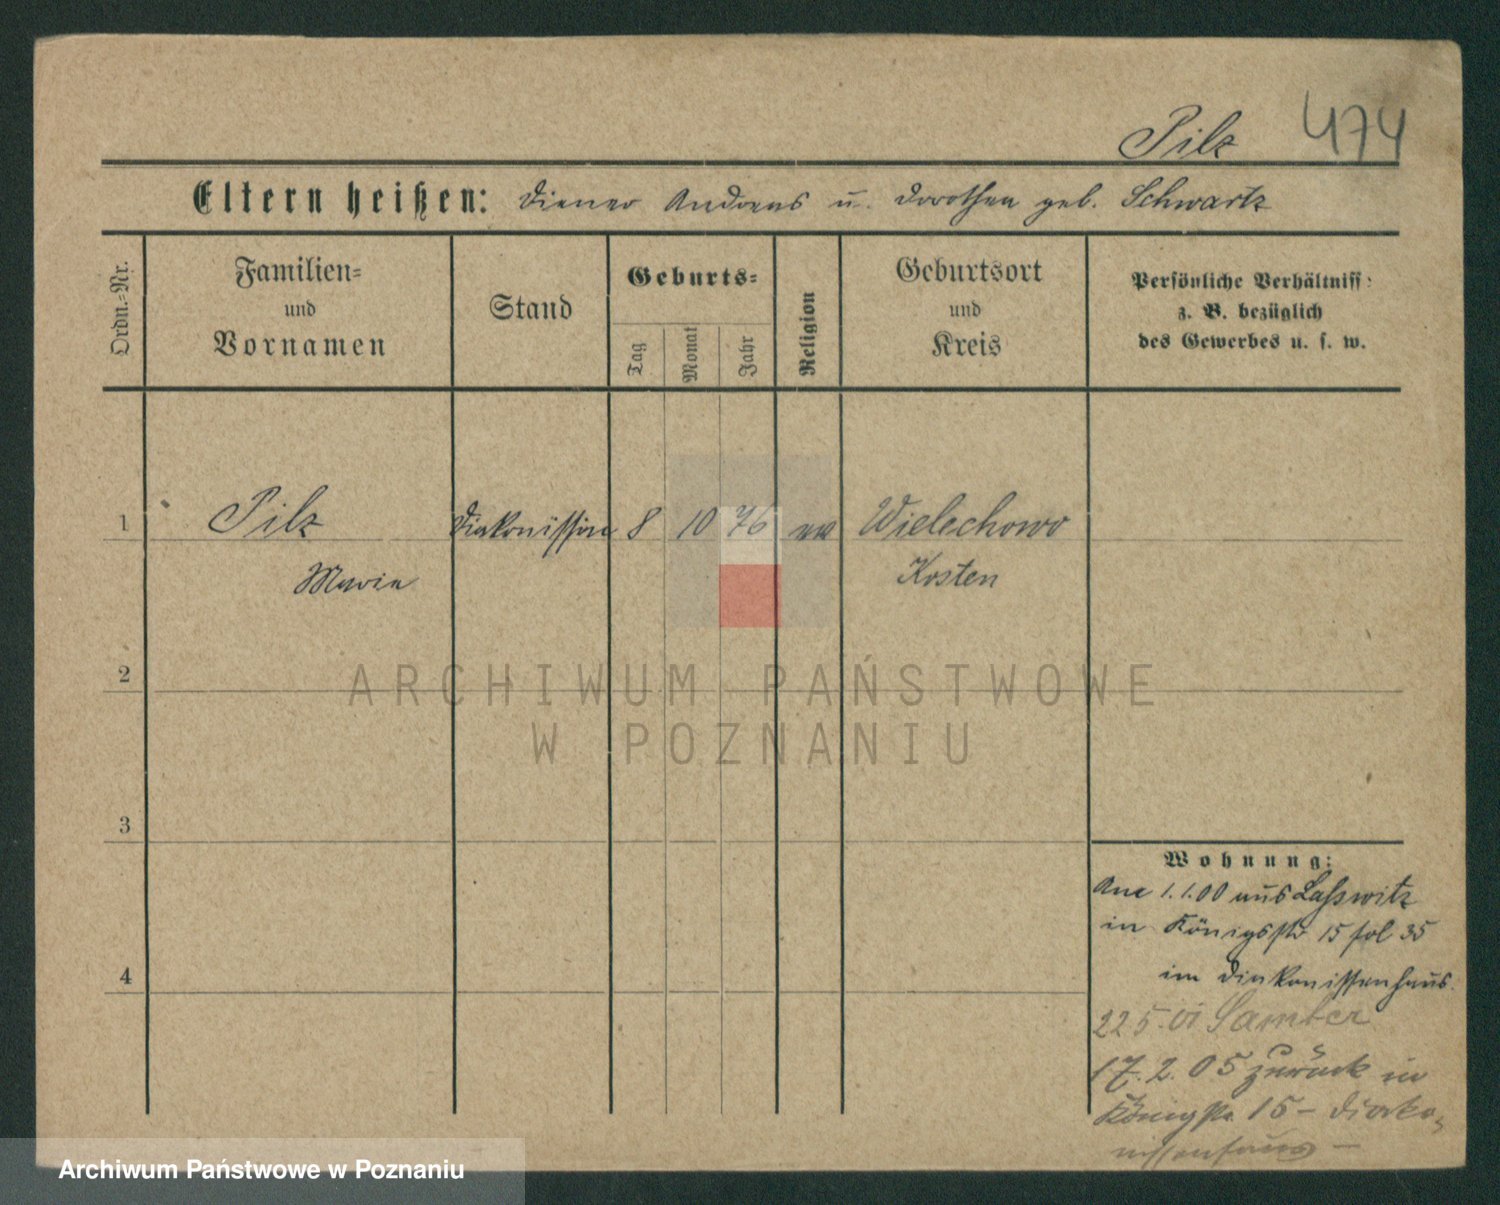 Pilz 474
Eltern heißen: Diener Andreas u. Dorothea geb. Schwartz
Ordn.-Nr.
Familien-
und
Vornamen
Stand
Geburts-
Tag
Monat
Jahr
Religion
Geburtsort
und
Kreis
Persönliche Verhältniss
z. B. bezüglich
des Gewerbes u. s. w.
1 Pilz Diakonissin 8 10 76 ev Wielechowo
Marie Kosten
2
ARCHIWUM PAŃSTWOWE
W POZNANIU
3
Wohnung:
1.1.00 aus Lasswitz
in Königsstr 15 fol 35
4
im Diakonissenhaus.
22 5. 01 Samter
17. 2. 05 zurück in
Königstr. 15 – Diako-
nissenhaus –
Archiwum Państwowe w Poznaniu